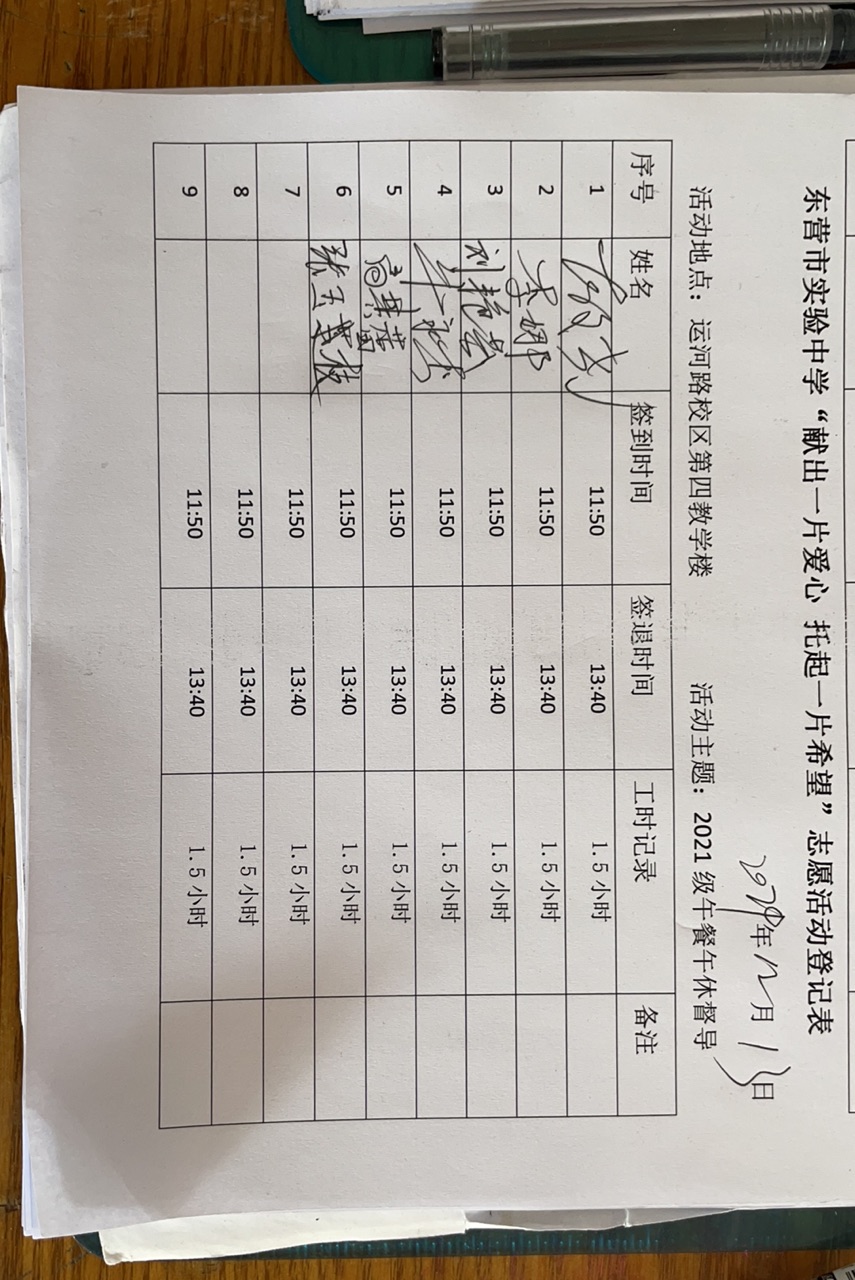 东营市实验中学“献出一片爱心 托起一片希望”志愿活动登记表
2024年12月13日
活动地点：运河路校区第四教学楼 活动主题：2021级午餐午休督导
序号 姓名 签到时间 签退时间 工时记录 备注
1 11:50 13:40 1.5小时
2 李娜 11:50 13:40 1.5小时
3 刘艳芳 11:50 13:40 1.5小时
4 11:50 13:40 1.5小时
5 11:50 13:40 1.5小时
6 张玉 11:50 13:40 1.5小时
7 11:50 13:40 1.5小时
8 11:50 13:40 1.5小时
9 11:50 13:40 1.5小时